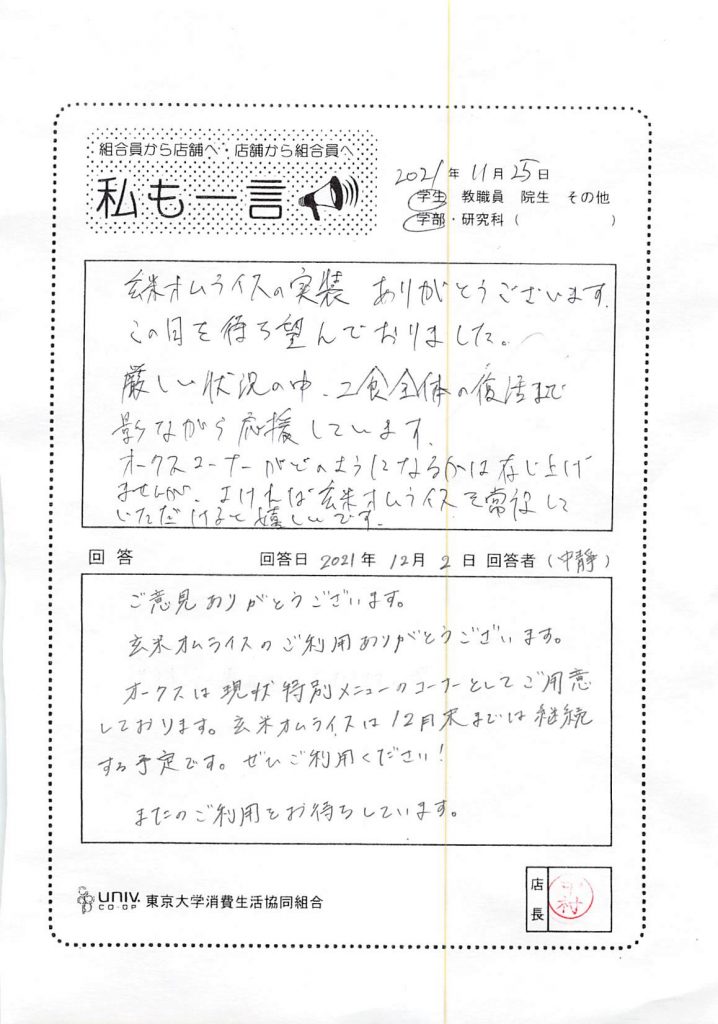 組合員から店舗へ・店舗から組合員へ
私も一言
2021年 11月25日
学生 教職員 院生 その他
学部・研究科( )
玄米オムライスの実装 ありがとうございます.
この日を待ち望んでおりました。
厳しい状況の中、2食全体の復活まで
影ながら応援しています.
オークスコーナーがどのようになるかは存じ上げ
ませんが、よければ玄米オムライスを常設して
いただけると嬉しいです.
回答 回答日 2021年 12月 2日 回答者(中静)
ご意見ありがとうございます。
玄米オムライスのご利用ありがとうございます。
オークスは現状特別メニューのコーナーとしてご用意
しております。玄米オムライスは12月末までは継続
する予定です。ぜひご利用ください!
またのご利用をお待ちしています。
UNIV. CO-OP 東京大学消費生活協同組合
店長